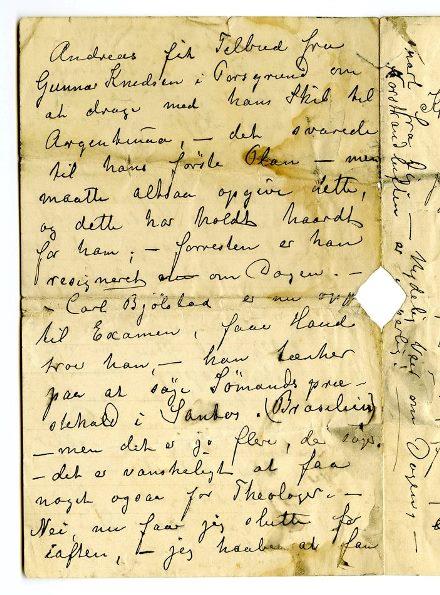 Andreas fik Tilbud fra
Gunnar Knudsen i Porsgrund om
at drage med hans Skib til
Argentina, – det svarede
til hans første Plan – men
maatte altsaa opgive dette,
og dette har holdt haardt
for ham; – forresten er han
resigneret om Dagen. –
– Carl Bjölstad er nu oppe
til Examen, faar Haud
tror han, – han tænker
paa at søge Sömandspræ-
stekald i Santos. (Brasilien)
– men det er jo flere, de søger
– det er vanskeligt at faa
noget ogsaa for Theologer. –
Nei, nu faar jeg slutte for
iaften, – jeg haaber at faa
snart fra
– Nydelig Veir om Dagen, –
er